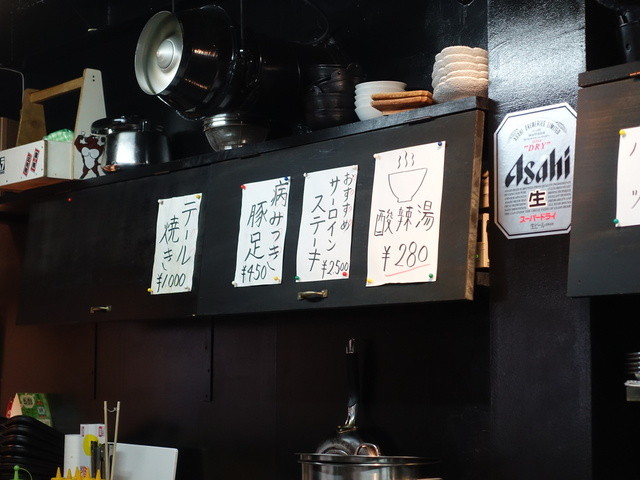 酸辣湯
¥280
おすすめ
サーロイン
ステーキ
¥2500
病みつき
豚足
¥450
テール
焼き
¥1000
ASAHI BREWERIES LIMITED
"DRY"
Asahi
生
スーパードライ